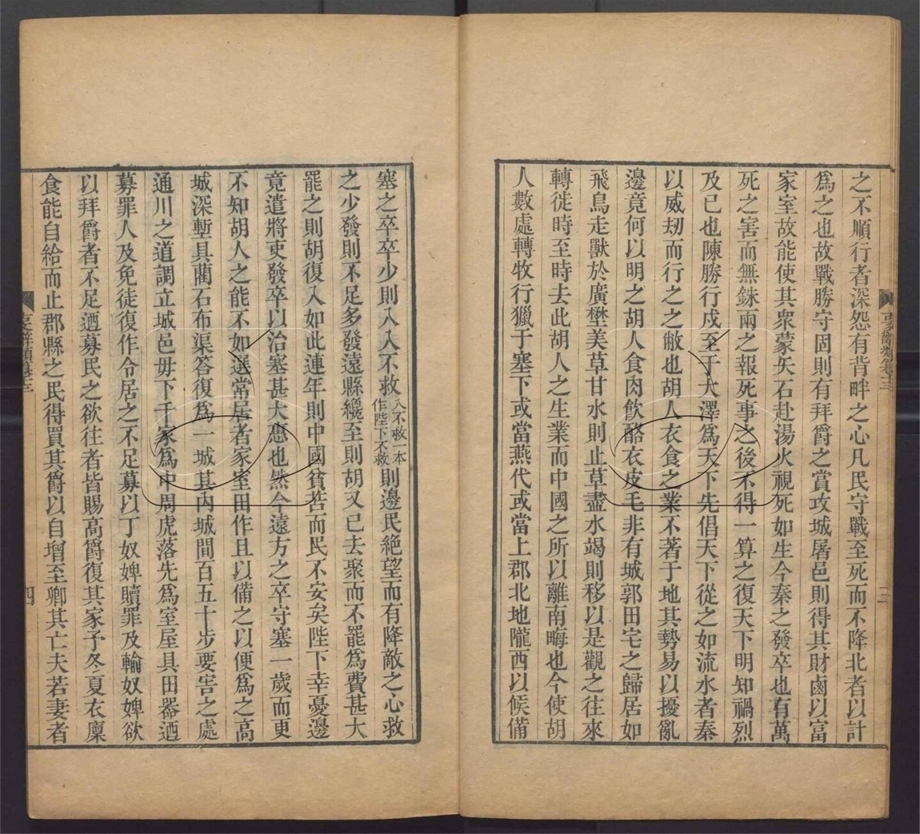 之不順行者深怨有背畔之心凡民守戰至死而不降北者以計
爲之也故戰勝守固則有拜爵之賞攻城屠邑則得其財鹵以富
家室故能使其衆蒙矢石赴湯火視死如生今秦之發卒也有萬
死之害而無銖兩之報死事之後不得一算之復天下明知禍烈
及已也陳勝行戍至于大澤爲天下先倡天下從之如流水者秦
以威劫而行之之敝也胡人衣食之業不著于地其勢易以擾亂
邊竟何以明之胡人食肉飲酪衣皮毛非有城郭田宅之歸居如
飛鳥走獸於廣壄美草甘水則止草盡水竭則移以是觀之往來
轉徙時至時去此胡人之生業而中國之所以離南畮也今使胡
人數處轉牧行獵于塞下或當燕代或當上郡北地隴西以候備
三
塞之卒卒少則入入不救入不救一本作陛下不救則邊民絕望而有降敵之心救
之少發則不足多發遠縣纔至則胡又已去聚而不罷爲費甚大
罷之則胡復入如此連年則中國貧苦而民不安矣陛下幸憂邊
竟遣將吏發卒以治塞甚大惠也然今遠方之卒守塞一歲而更
不知胡人之能不如選常居者家室田作且以備之以便爲之高
城深塹具藺石布渠答復爲一城其內城間百五十步要害之處
通川之道調立城邑毋下千家爲中周虎落先爲室屋具田器迺
募罪人及免徒復作令居之不足募以丁奴婢贖罪及輸奴婢欲
以拜爵者不足迺募民之欲往者皆賜高爵復其家予冬夏衣廩
食能自給而止郡縣之民得買其爵以自增至卿其亡夫若妻者
四